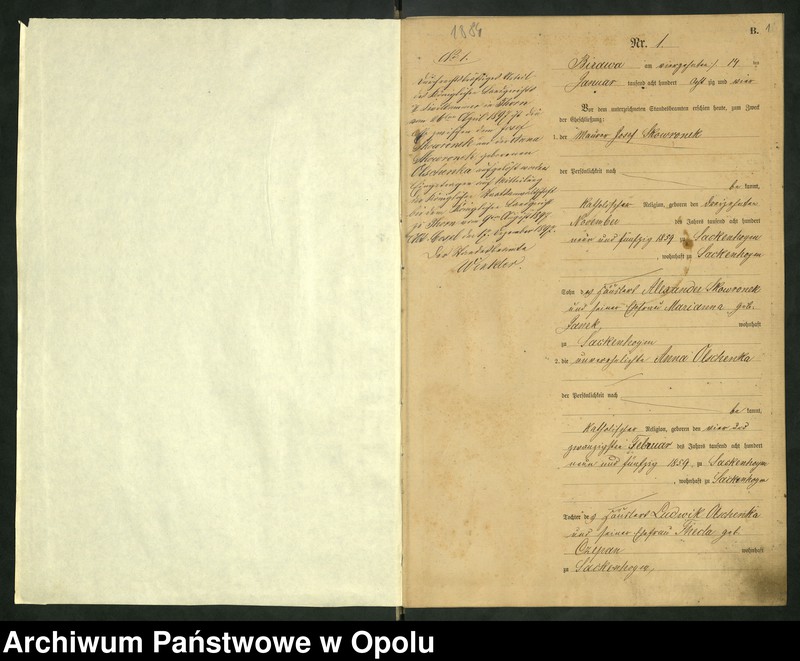 1884
No 1.
Durch rechtskräftiges Urteil
des Königlichen Landgerichts
Civilkammer in
vom April 1897 ist die
Ehe zwischen dem Josef
Skowronek und der Anna
Skowronek geborenen
Olschenka aufgelöst worden
Eingetragen auf Mitteilung
der Königlichen Staatsanwaltschaft
bei dem Königlichen Landgericht
zu vom August 1897.
Dezember 1897.
Der Standesbeamte
Winkler.
B. 1
Nr. 1.
Birawa am vierzehnten 14 ten
Januar tausend acht hundert acht zig und vier
Vor dem unterzeichneten Standesbeamten erschien heute, zum Zweck
der Eheschließung:
1. der Maurer Josef Skowronek
der Persönlichkeit nach
be kannt,
katholischer Religion, geboren den dreizehnten
November des Jahres tausend acht hundert
neun und fünfzig 1859 zu Sackenhoym
, wohnhaft zu Sackenhoym
Sohn des Häuslers Alexander Skowronek
und seiner Ehefrau Marianna geb.
Janek, wohnhaft
zu Sackenhoym
2. die unverehelichte Anna Olschenka
der Persönlichkeit nach
be kannt,
katholischer Religion, geboren den vier und
zwanzigsten Februar des Jahres tausend acht hundert
neun und fünfzig 1859, zu Sackenhoym
, wohnhaft zu Sackenhoym
Tochter des Häuslers Ludwik Olschenka
und seiner Ehefrau Thecla geb
Czepan wohnhaft
zu Sackenhoym,
Archiwum Państwowe w Opolu